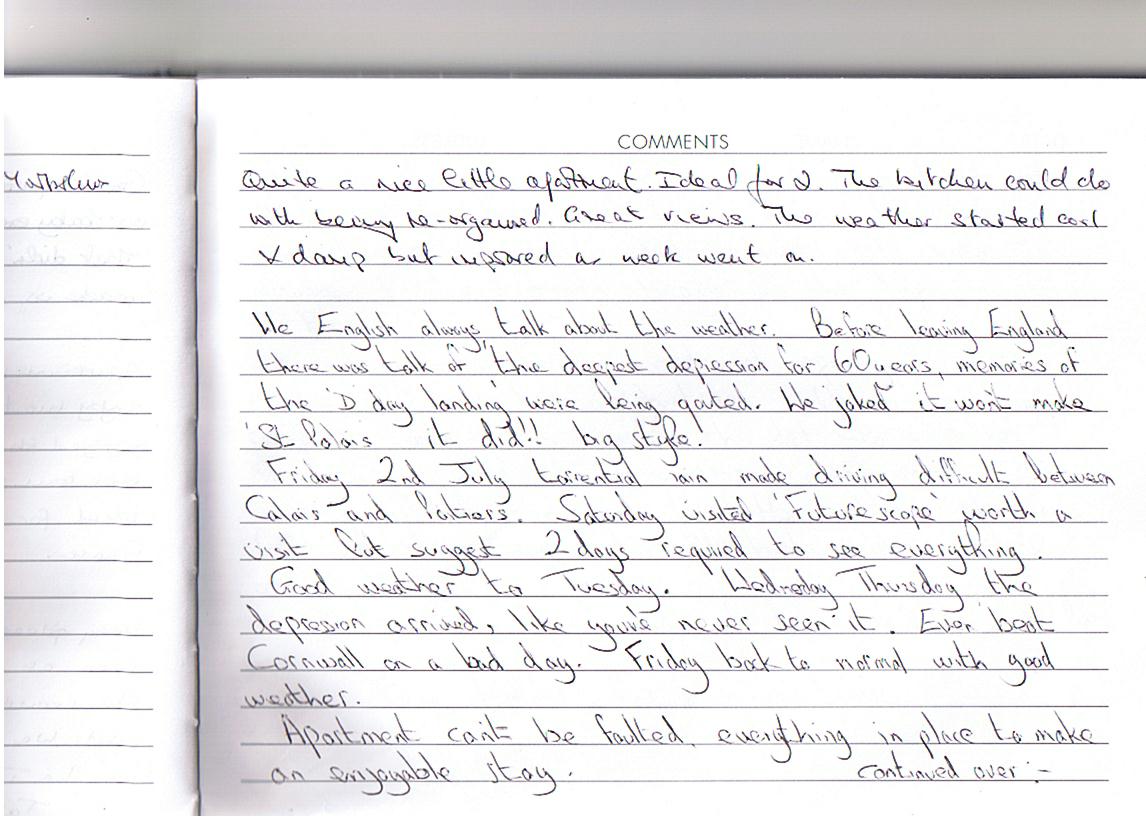 COMMENTS
Yorkshire
Quite a nice little apartment. Ideal for 2. The kitchen could do
with being re-organised. Great views. The weather started cool
& damp but improved as week went on.
We English always talk about the weather. Before leaving England
there was talk of 'the deepest depression for 60 years, memories of
the 'D day landing' were being quoted. We joked it won't make
'St Palais it did!! big style!
Friday 2nd July torrential rain made driving difficult between
Calais and Poitiers. Saturday visited 'Futurescope' worth a
visit but suggest 2 days required to see everything.
Good weather to Tuesday. Wednesday Thursday the
depression arrived, like you've never seen it. Even beat
Cornwall on a bad day. Friday back to normal with good
weather.
Apartment can't be faulted, everything in place to make
an enjoyable stay. Continued over :-